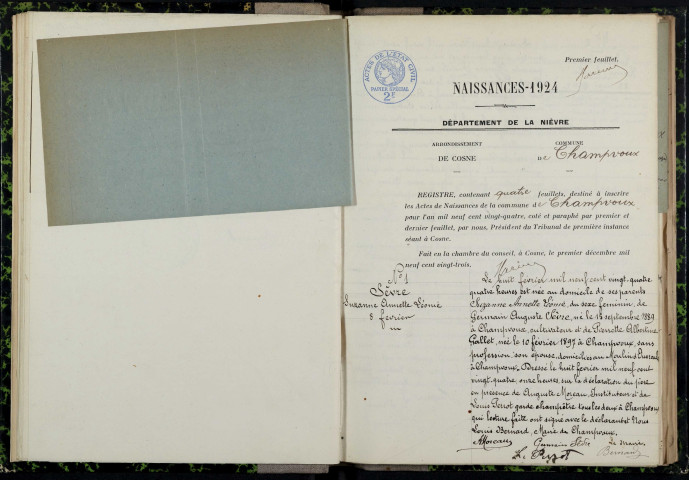 Premier feuillet,
ACTES DE L'ETAT CIVIL
PAPIER SPÉCIAL
2F
NAISSANCES-1924
DÉPARTEMENT DE LA NIÈVRE
ARRONDISSEMENT
DE COSNE
COMMUNE
DE Champvoux
REGISTRE, contenant quatre feuillets, destiné à inscrire
les Actes de Naissances de la commune de Champvoux
pour l'an mil neuf cent vingt-quatre, coté et paraphé par premier et
dernier feuillet, par nous, Président du Tribunal de première instance
séant à Cosne.
Fait en la chambre du conseil, à Cosne, le premier décembre mil
neuf cent vingt-trois.
N° 1
Sèvre
Suzanne Annette Léonie
8 février
Le huit février mil neuf cent vingt-quatre
quatre heures est née au domicile de ses parents
Suzanne Annette Léonie, du sexe féminin, de
Germain Auguste Sèvre, né le 15 septembre 1889
à Champvoux, cultivateur et de Pierrette Albertine
Gallet, née le 10 février 1897 à Champvoux, sans
profession, son épouse, domiciliés au Moulin
à Champvoux. Dressé le huit février mil neuf cent
vingt quatre, onze heures, sur la déclaration du père
en présence de Auguste Moreau, Instituteur et de
Louis Perrot garde champêtre tous les deux à Champvoux
qui lecture faite ont signé avec le déclarant et Nous
Louis Bernard, Maire de Champvoux.
AMoreau Germain Sèvre Le maire
L. Perrot Bernard